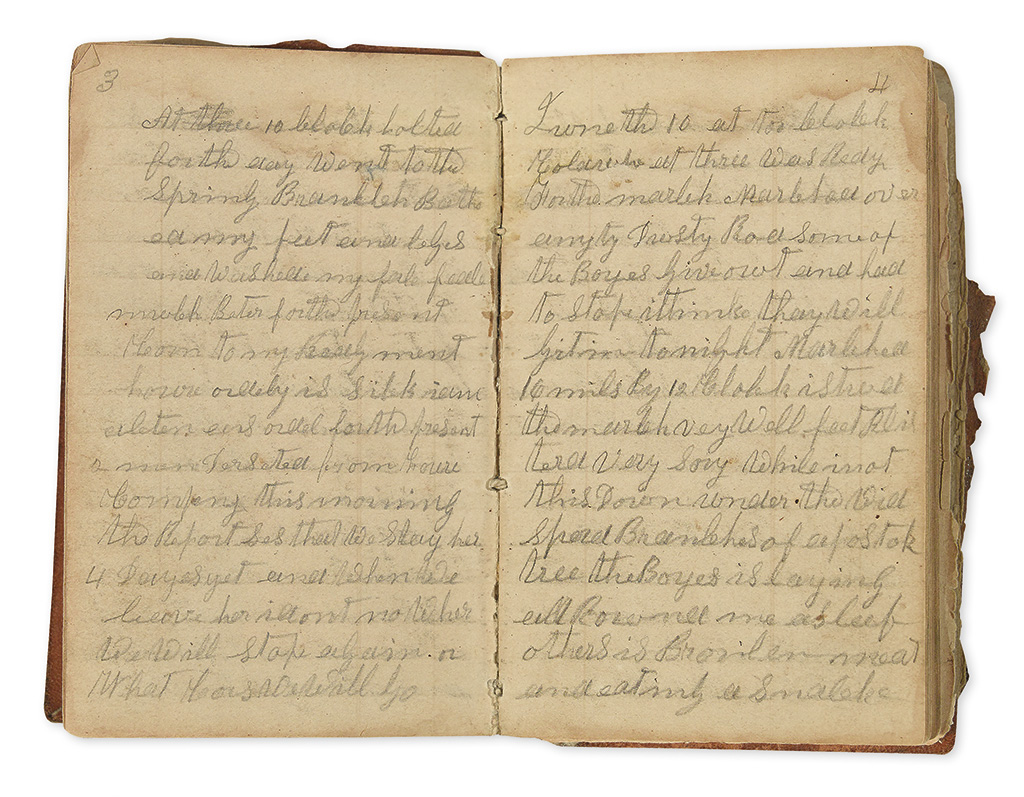 3
At three 10 clolck holted
forth day Went to the
Spring Branclch Bath
ed my feet and leges
and Washed my fak feell
mutch Beter forth present
Hom to my Redgment
houre ordely is Sick i am
acten ors ordel forth present
2 men Derseted from houre
Compeny this morning
the Report Ses that We Stay her
4 Dayes yet and When We
leave her i dont no Wher
We Will Stop again or
What Hous We Will Go
4
June th 10 at too clolck
at three Was Redy
For the martch Martched over
a Dusty Road Some of
the Boyes Give owt and had
to Stop i think thay Will
Git in tonight Martched
16 mils By 12 Clolck i strod
the martch vey Well feet Blis
terd Very Sory While i rot
this Down under the Wid
Spread Branches of a post ok
tree the Boyes is laying
all Rownd me asleep
others is Broilen meat
and eating a Snacke